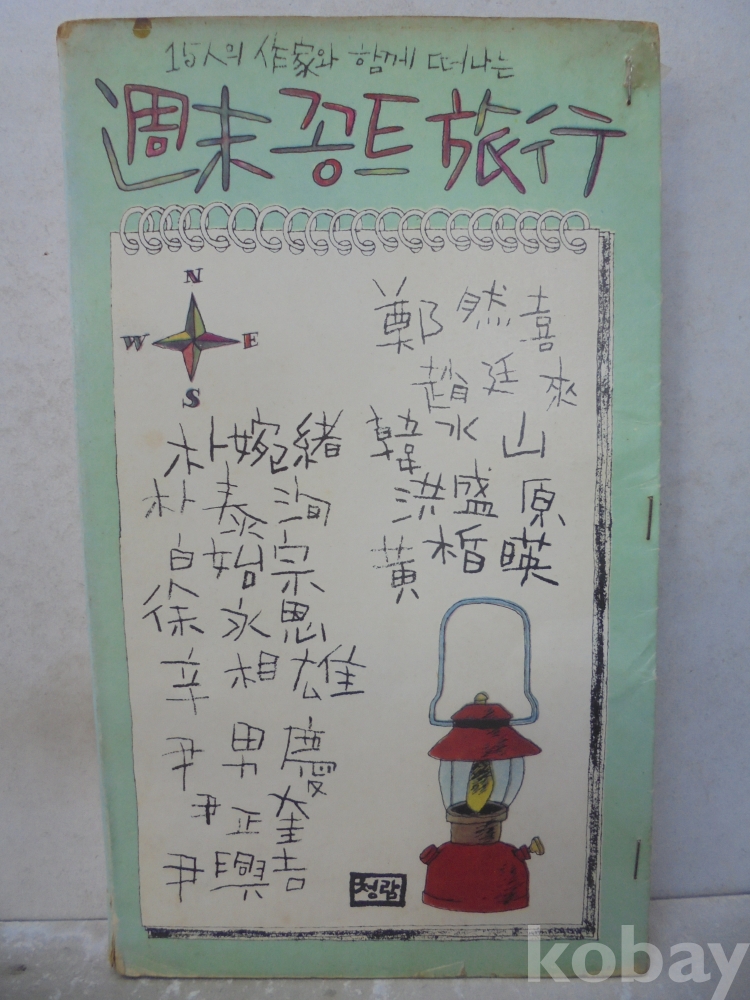 15人의 作家와 함께 떠나는
週末 꽁트 旅行
N
W E
S
朴婉緖
朴泰洵
白始宗
徐永恩
辛相雄
尹男慶
尹正奎
尹興吉
鄭然喜
趙廷來
韓水山
洪盛原
黃晳暎
청람
kobay